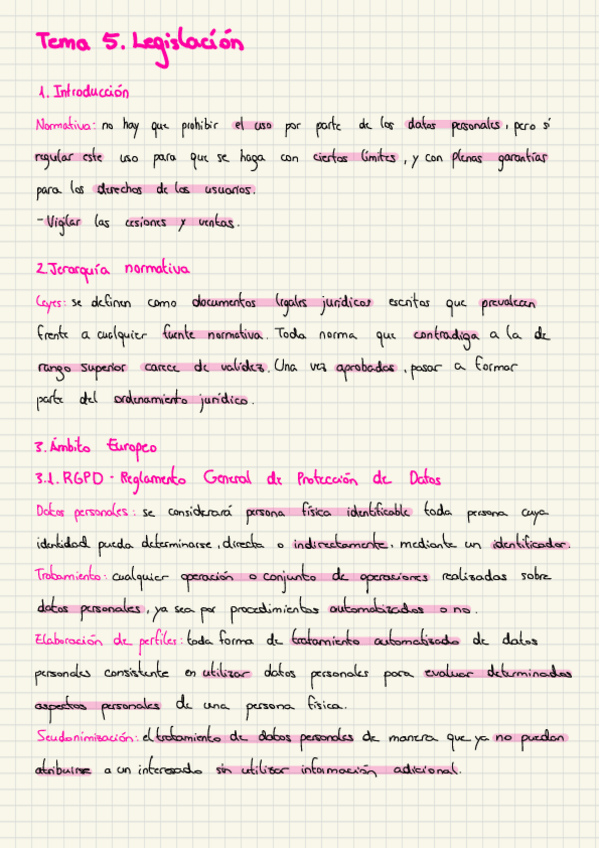 Tema 5. Legislación
1. Introducción
Normativa: no hay que prohibir el uso por parte de los datos personales, pero sí
regular este uso para que se haga con ciertos límites, y con plenas garantías
para los derechos de los usuarios.
- Vigilar las cesiones y ventas.
2. Jerarquía normativa
Leyes: se definen como documentos legales jurídicos escritos que prevalecen
frente a cualquier fuente normativa. Toda norma que contradiga a la de
rango superior carece de validez. Una vez aprobadas, pasar a formar
parte del ordenamiento jurídico.
3. Ámbito Europeo
3.1. RGPD - Reglamento General de Protección de Datos
Datos personales: se considerará persona física identificable toda persona cuya
identidad pueda determinarse, directa o indirectamente, mediante un identificador.
Tratamiento: cualquier operación o conjunto de operaciones realizadas sobre
datos personales, ya sea por procedimientos automatizados o no.
Elaboración de perfiles: toda forma de tratamiento automatizado de datos
personales consistente en utilizar datos personales para evaluar determinados
aspectos personales de una persona física.
Seudonimización: el tratamiento de datos personales de manera que ya no puedan
atribuirse a un interesado sin utilizar información adicional.